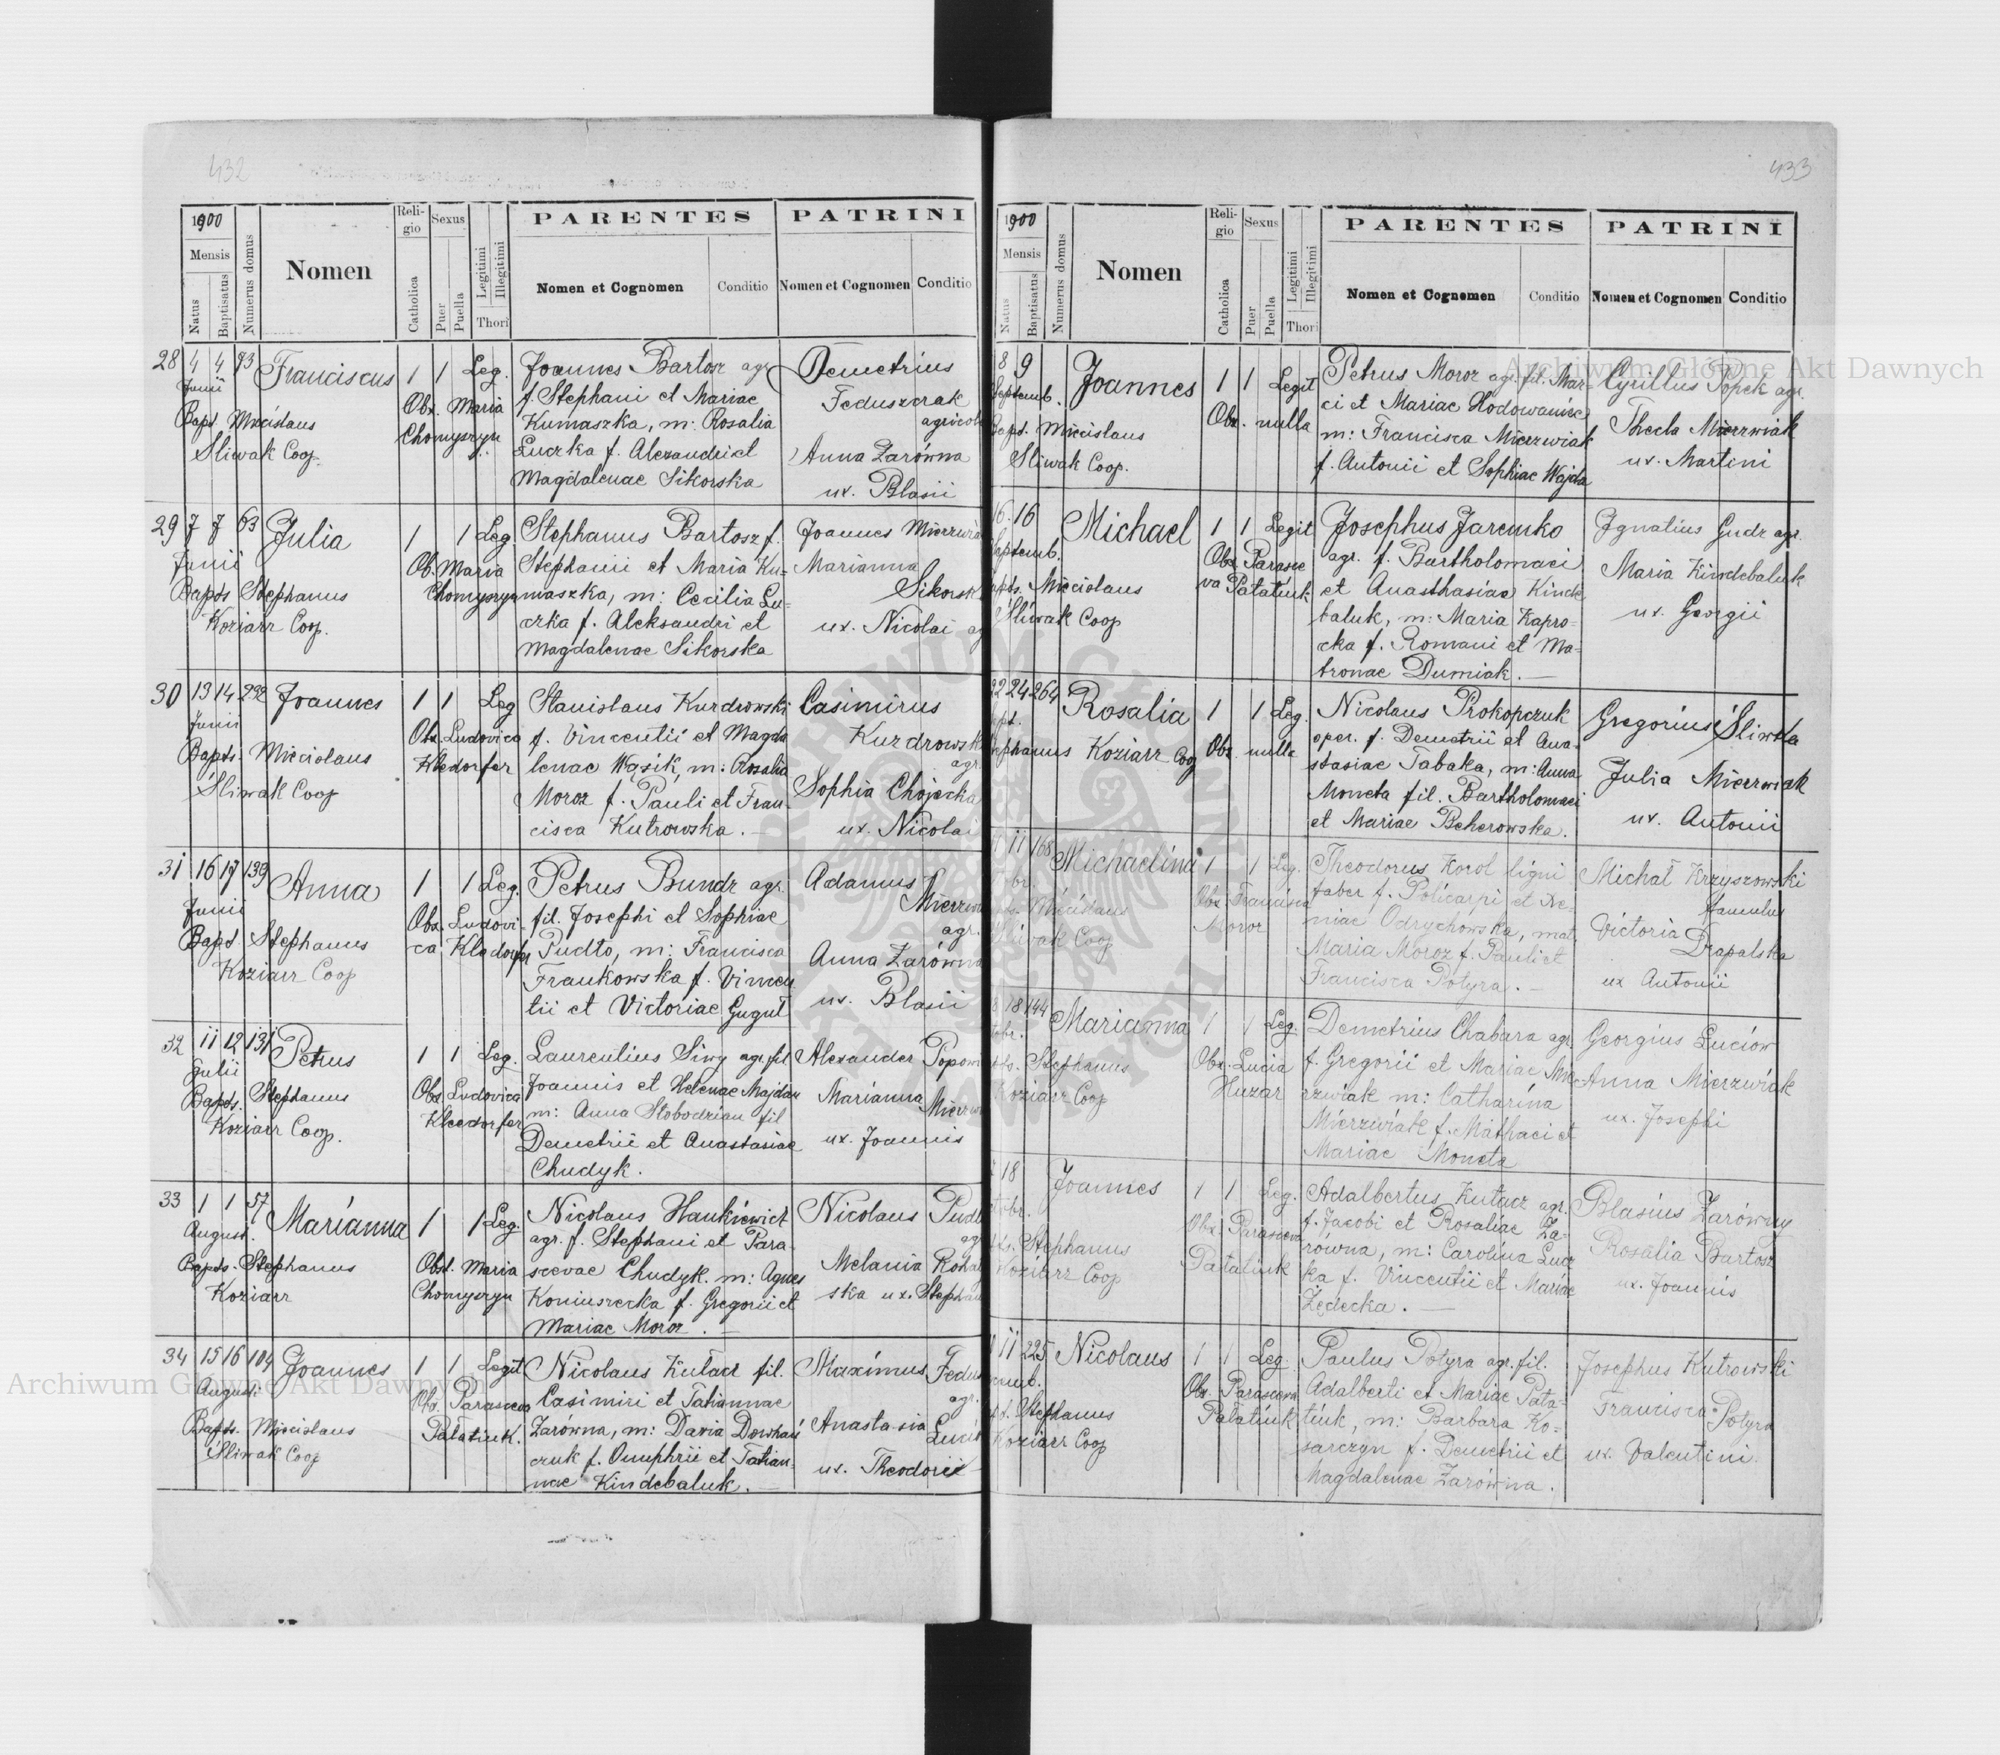 432
1900
Mensis
Natus
Baptisatus
Numerus domus
Nomen
Religio
Catholica
Sexus
Puer
Puella
Legitimi
Illegitimi
Thori
PARENTES
Nomen et Cognomen
Conditio
PATRINI
Nomen et Cognomen
Conditio
28 4 4 93 Franciscus 1 1 Leg.
Junii
Bapt. Miecislaus
Sliwak Coop.
Obs. Maria
Chomyszyn
Joannes Bartosz agr
f. Stephani et Mariae
Kumaszka, m: Rosalia
Luczka f. Alexandri et
Magdalenae Sikorska
Demetrius
Feduszczak
agricola
Anna Zarówna
ux. Blasii
29 7 7 63 Julia 1 1 Leg.
Junii
Bapts Stephanus
Koziarz Coop.
Ob. Maria
Chomyszyn
Stephanus Bartosz f.
Stephanii et Maria Ku-
maszka, m: Cecilia Lu-
czka f. Aleksandri et
Magdalenae Sikorska
Joannes
Marianna
ux. Nicolai
30 13 14 292 Joannes 1 1 Leg
Junii
Bapts. Miecislaus
Śliwak Coop
Obs. Ludovica
Kledorfer
Stanislaus Kurdrowski
f. Vincentii et Magda
lenae Wąsik, m: Rosalia
Moroz f. Pauli et Fran-
cisca Kutrowska.
Casimirus
agr.
Sophia Chojecka
ux. Nicolai
31 16 17 139 Anna 1 1 Leg.
Junii
Bapt Stephanus
Koziarz Coop
Obs. Ludovi-
ca Kledorfer
Petrus Bundz agr.
fil. Josephi et Sophiae
Pudło, m: Francisca
Frankowska f. Vincen
tii et Victoriae Guguł
Adamus
agr.
Anna Zarówna
ux. Blasii
32 11 12 131 Petrus 1 1 Leg.
Julii
Bapts. Stephanus
Koziarz Coop.
Obs Ludovica
Kledorfer
Laurentius Siwy agr. fil
Joannis et Helenae Majdan
m: Anna Słobodzian fil
Demetrii et Anastasiae
Chudyk.
Alexander
Marianna
ux. Joannis
33 1 1 57 Marianna 1 1 Leg.
August.
Bapts. Stephanus
Koziarz
Obst. Maria
Chomyszyn
Nicolaus Hankiewicz
agr. f. Stephani et Para-
scevae Chudyk. m: Agnes
Koniuszecka f. Gregorii et
Mariae Moroz.
Nicolaus
Melania
ska ux. Stephani
34 15 16 104 Joannes 1 1 Legit
Augusti
Bapts. Miecislaus
Śliwak Coop
Obs. Parasceva
Palatiuk.
Nicolaus Kułacz fil.
Casimiri et Tatiannae
Zarówna, m: Daria Dowhań
czuk f. Onuphrii et Tatian-
nae Kindebaluk.
Maximus
agr.
Anastasia
ux. Theodorii
433
1900
Mensis
Natus
Baptisatus
Numerus domus
Nomen
Religio
Catholica
Sexus
Puer
Puella
Legitimi
Illegitimi
Thori
PARENTES
Nomen et Cognomen
Conditio
PATRINI
Nomen et Cognomen
Conditio
8 9 Joannes 1 1 Legit
Septemb.
Bapt. Miecislaus
Sliwak Coop.
Obs. nulla
Petrus Moroz agr. fil. Mar-
ci et Mariae Hodowaniec
m: Francisca Mierzwiak
f. Antonii et Sophiae Wajda
Cyrillus Popek agr.
Thecla Mierzwiak
ux. Martini
16 16 Michael 1 1 Legit
Septemb.
Miecislaus
Śliwak Coop
Obs. Parasce
va Palatiuk
Josephus Jaremko
agr. f. Bartholomaei
et Anasthasiae Kinde
baluk, m: Maria Kapro-
cka f. Romani et Ma-
tronae Dumiak.
Ignatius Gudz agr.
Maria Kindebaluk
ux. Georgii
22 24 264 Rosalia 1 1 Leg.
Stephanus Koziarz Coop
Obs. nulla
Nicolaus Prokopczuk
oper. f. Demetrii et Ana-
stasiae Tabaka, m: Anna
Moneta fil. Bartholomaei
et Mariae
Gregorius Śliwka
Julia Mierzwiak
ux. Antonii
11 168 Michaelina 1 1 Leg.
Miecislaus
Śliwak Coop
Obs. Francisca
Moroz
Theodorus Korol ligni
faber f. Policarpi et
Odrychowska, mat.
Maria Moroz f. Pauli et
Francisca Potyra.
Michał Krzyszowski
famulus
Victoria
Drapalska
ux Antonii
18 144 Marianna 1 1 Leg.
Stephanus
Koziarz Coop
Obs. Lucia
Huzar
Demetrius Chabara agr.
f. Gregorii et Mariae Mie
rzwiak m: Catharina
Mierzwiak f. Mathaei et
Mariae Moneta
Georgius Luciów
Anna Mierzwiak
ux. Josephi
18 Joannes 1 1 Leg.
Stephanus
Koziarz Coop
Obs. Parasceva
Palatiuk
Adalbertus Kułacz agr.
f. Jacobi et Rosaliae Za-
równa, m: Carolina Łucz
ka f. Vincentii et Mariae
Zędecka.
Blasius Zarówny
Rosalia Bartosz
ux. Joannis
11 225 Nicolaus 1 1 Leg.
Stephanus
Koziarz Coop
Obs. Parasceva
Palatiuk
Paulus Potyra agr. fil.
Adalberti et Mariae Pala-
tiuk, m: Barbara Ko-
sarczyn f. Demetrii et
Magdalenae Zarówna.
Josephus Kutrowski
Francisca Potyra
ux. Valentini
Archiwum Główne Akt Dawnych
Archiwum Główne Akt Dawnych
ARCHIWUM GŁÓWNE AKT DAWNYCH